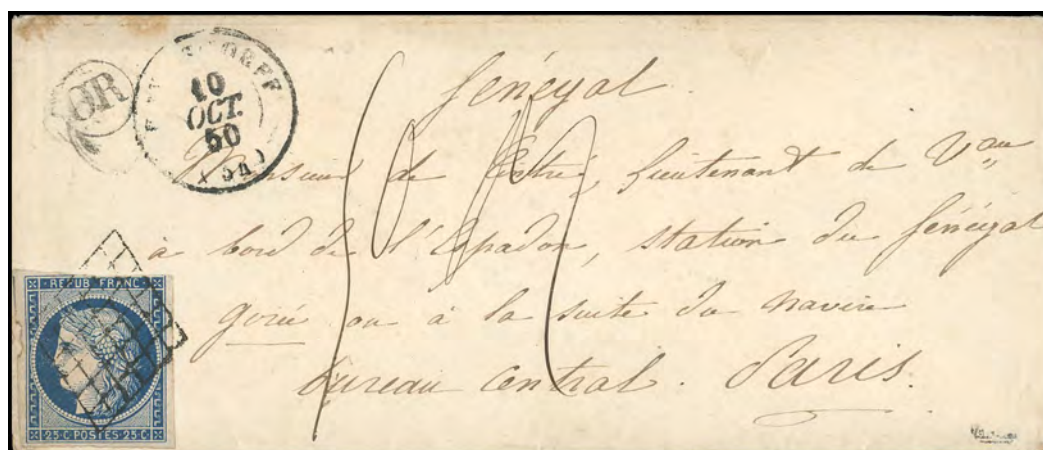 OR
10
OCT.
50
(54)
Sénégal
Monsieur de lieutenant de Vau
à bord de l'Espadon, station du Sénégal
gorée ou à la suite du navire
bureau central. Paris.
REPUB. FRANC.
25 C POSTES 25 C